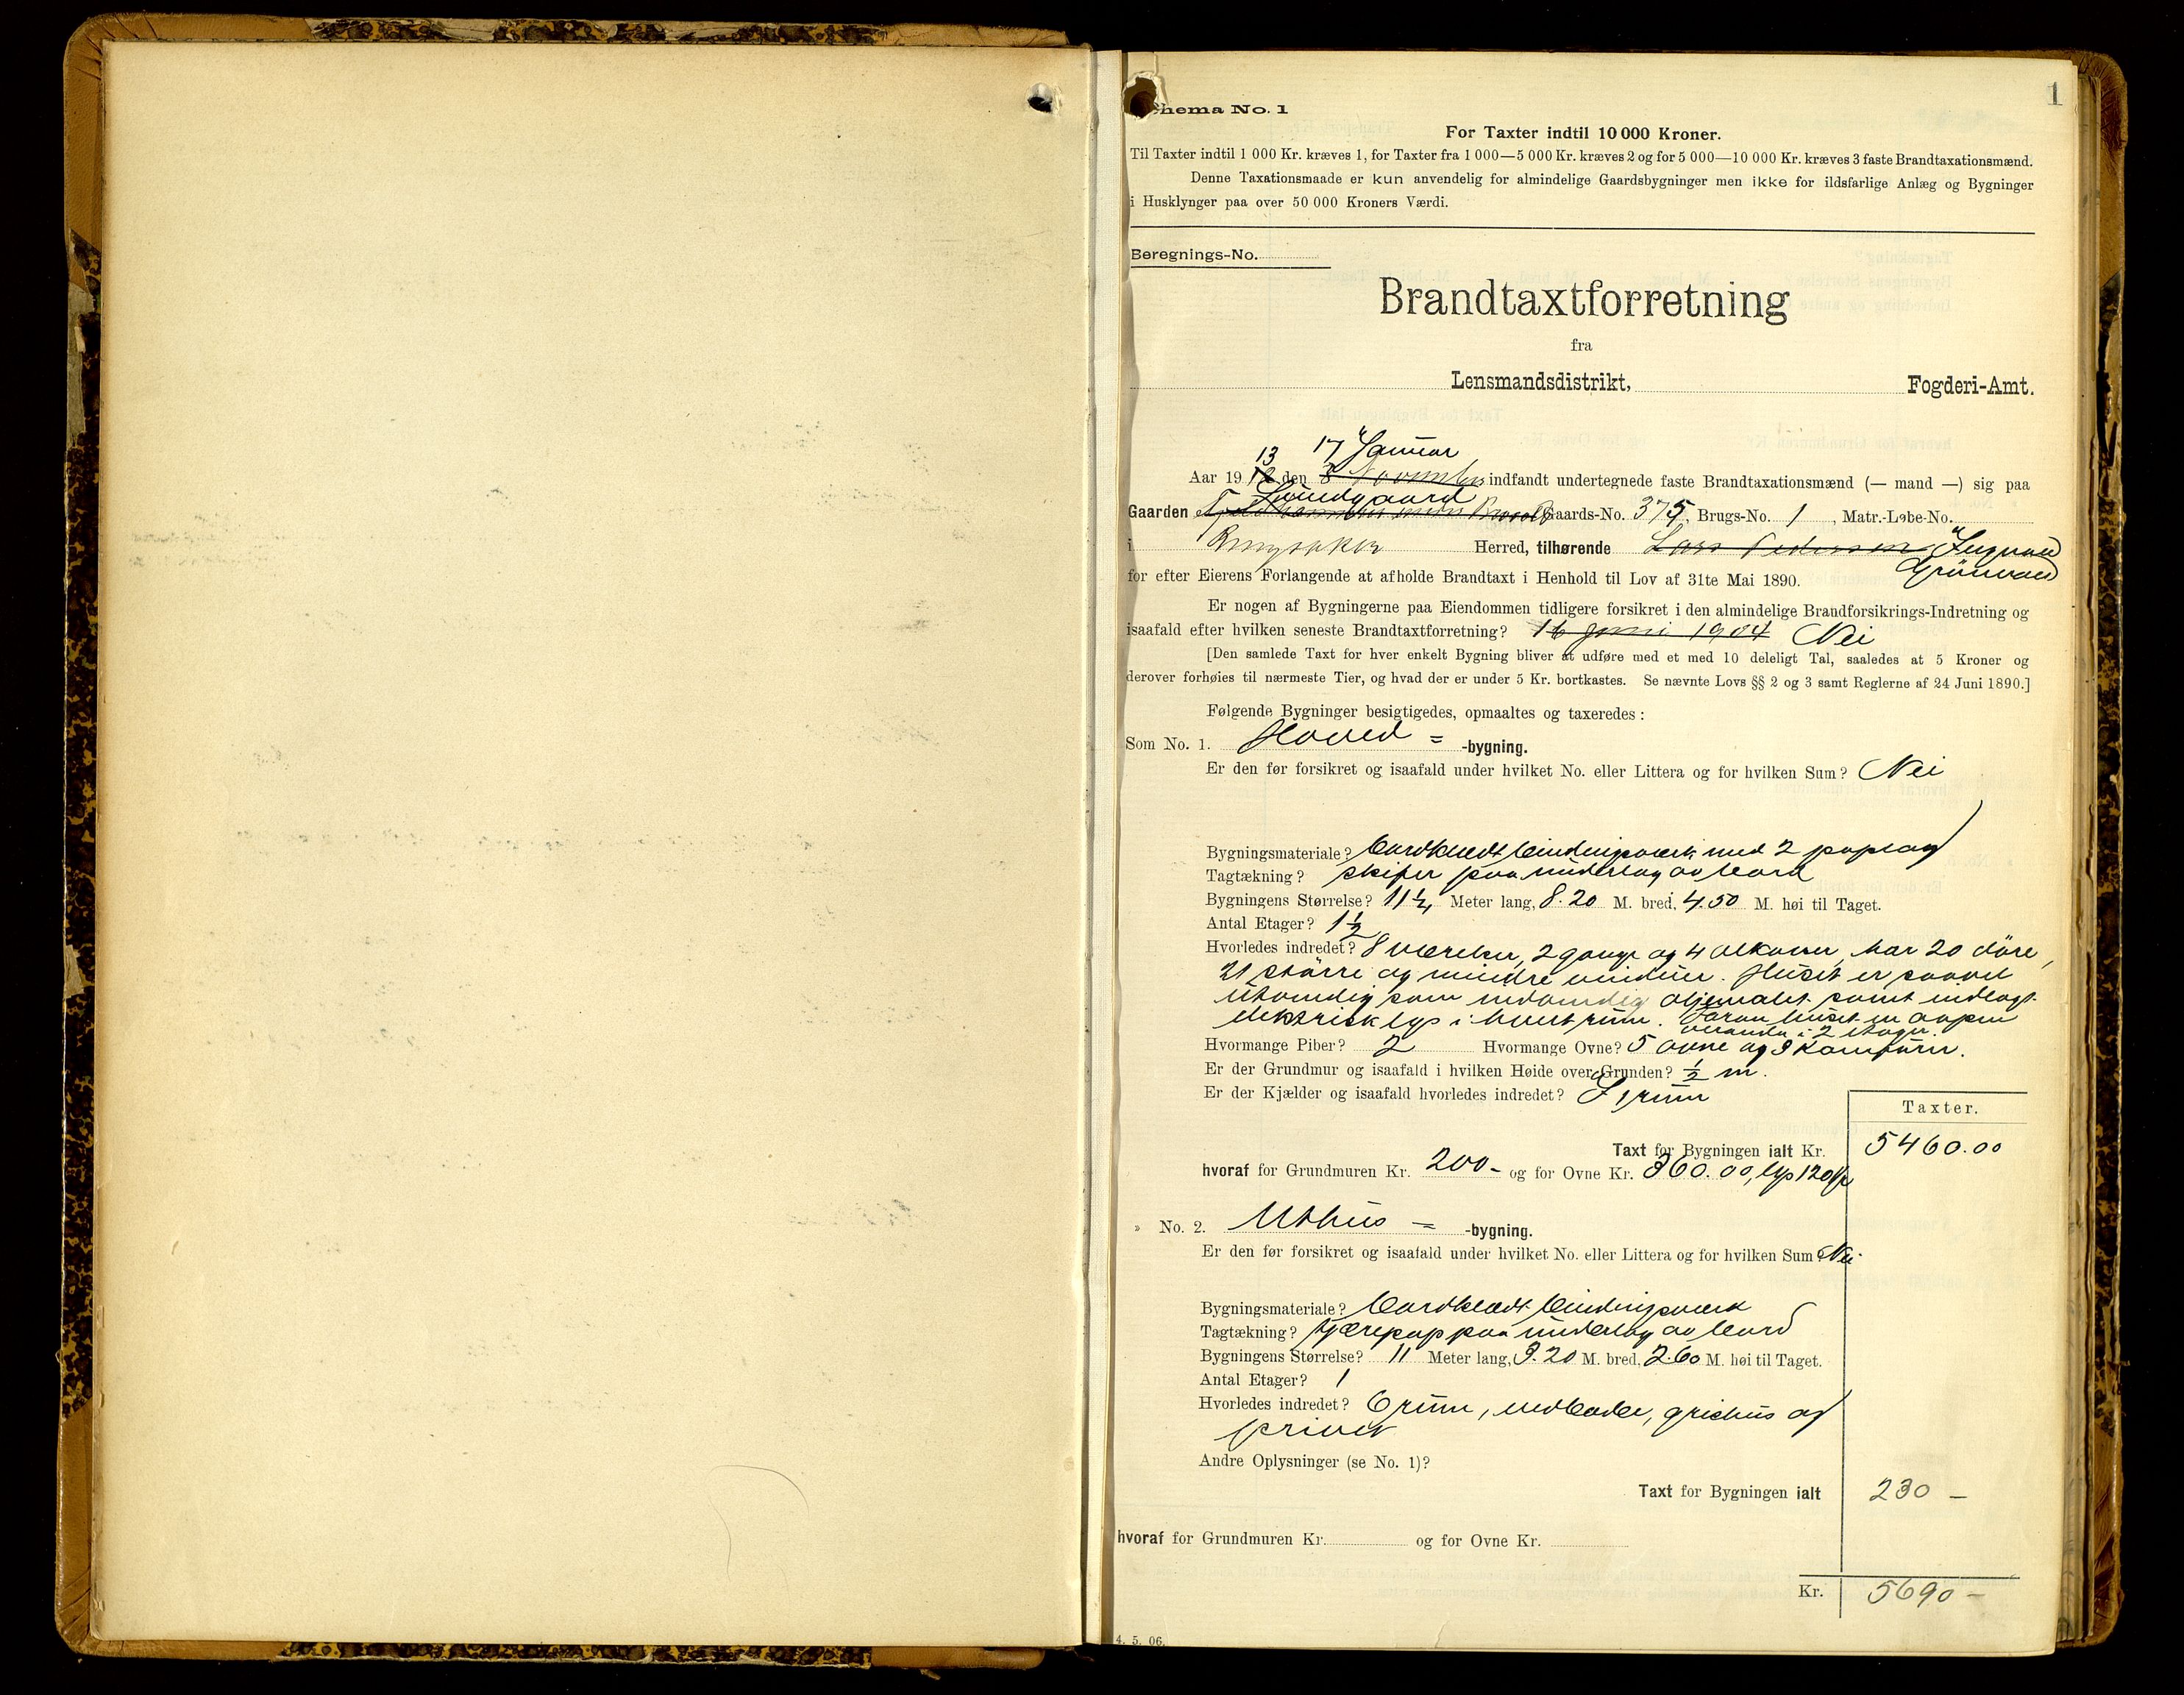 1
hema No. 1
For Taxter indtil 10 000 Kroner.
Til Taxter indtil 1 000 Kr. kræves 1, for Taxter fra 1 000—5 000 Kr. kræves 2 og for 5 000—10 000 Kr. kræves 3 faste Brandtaxationsmænd.
Denne Taxationsmaade er kun anvendelig for almindelige Gaardsbygninger men ikke for ildsfarlige Anlæg og Bygninger
i Husklynger paa over 50 000 Kroners Værdi.
Beregnings-No.
Brandtaxtforretning
fra
Lensmandsdistrikt, Fogderi-Amt.
13 17 Januar
Aar 1912 den 8 November indfandt undertegnede faste Brandtaxationsmænd (— mand —) sig paa
Gaarden Gaards-No. 375, Brugs-No. 1, Matr.-Løbe-No.
i Ringsaker Herred, tilhørende Lars Pedersen
for efter Eierens Forlangende at afholde Brandtaxt i Henhold til Lov af 31te Mai 1890.
Er nogen af Bygningerne paa Eiendommen tidligere forsikret i den almindelige Brandforsikrings-Indretning og
isaafald efter hvilken seneste Brandtaxtforretning? 16 juni 1904 Nei
[Den samlede Taxt for hver enkelt Bygning bliver at udføre med et med 10 deleligt Tal, saaledes at 5 Kroner og
derover forhøies til nærmeste Tier, og hvad der er under 5 Kr. bortkastes. Se nævnte Lovs §§ 2 og 3 samt Reglerne af 24 Juni 1890.]
Følgende Bygninger besigtigedes, opmaaltes og taxeredes:
Som No. 1. Hoved = -bygning.
Er den før forsikret og isaafald under hvilket No. eller Littera og for hvilken Sum? Nei
Bygningsmateriale? bordklædt bindingsværk med 2 paplag
Tagtækning? skifer paa underlag av bord
Bygningens Størrelse? 11 1/4 Meter lang, 8.20 M. bred, 4.50 M. høi til Taget.
Antal Etager? 1 1/2
Hvorledes indredet? 8 værelser, 2 gange og 4 alkover, har 20 döre,
21 större og mindre vinduer. Huset er saavel
utvendig som indvendig oljemalet samt indlagt
elektrisk lys i hvert rum. Foran huset en aapen
veranda i 2 etager.
Hvormange Piber? 2 Hvormange Ovne? 5 ovne og 3 komfurer.
Er der Grundmur og isaafald i hvilken Høide over Grunden? 1/2 m.
Er der Kjælder og isaafald hvorledes indredet? I 1 rum
Taxter.
Taxt for Bygningen ialt Kr. 5460.00
hvoraf for Grundmuren Kr. 200- og for Ovne Kr. 360.00, lys 120 kr
» No. 2. Uthus = -bygning.
Er den før forsikret og isaafald under hvilket No. eller Littera og for hvilken Sum Nei.
Bygningsmateriale? bordklædt bindingsværk
Tagtækning? tjærepap paa underlag av bord
Bygningens Størrelse? 11 Meter lang, 3.20 M. bred, 2.60 M. høi til Taget.
Antal Etager? 1
Hvorledes indredet? 6 rum, vedboder, grisehus og
privet
Andre Oplysninger (se No. 1)?
Taxt for Bygningen ialt 230 —
hvoraf for Grundmuren Kr. og for Ovne Kr.
Kr. 5690 -
4. 5. 06.